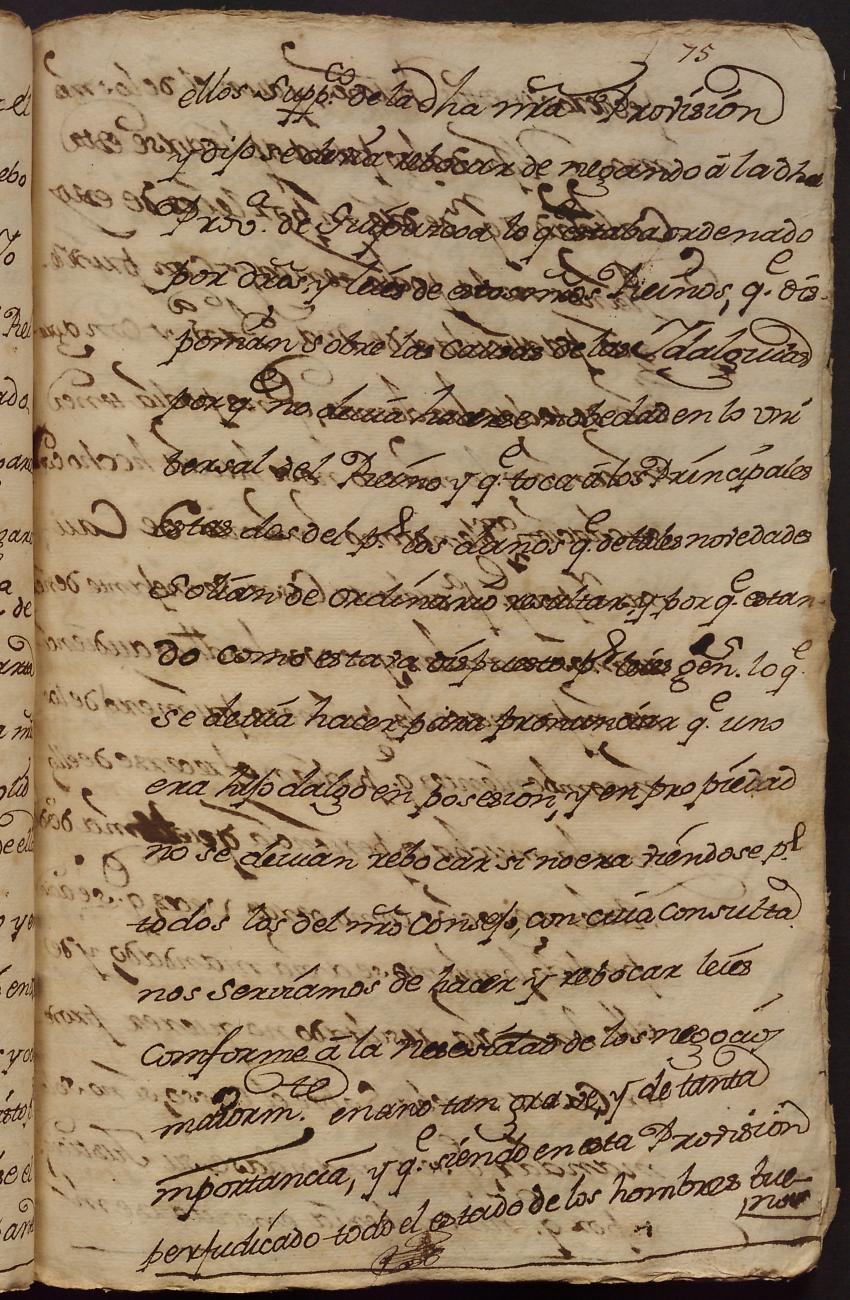 75
ellos Supp.cos de la dha nrã Provisión
y dijo se devia rebocar denegando à la dha
Prov.a de Guipuzcoa lo q.e estaba ordenado
por drõs y leies de estos nrõs Reinos, q.e dis-
ponian sobre las causas de las Idalguias
por q.e no devia hacerse nobedad en lo uni
bersal del Reino y q.e toca à los Principales
estados del p.r los daños q.e de tales novedades
Solian de ordinario resultar, y por q.e estan
do como estava dispuesto p.r leies gen.s lo q.e
se devia hacer para pronunciar q.e uno
era hijo dalgo en posesión, y en propiedad
no se devian rebocar si no era viéndose p.r
todos los del nrõ Consejo, con cuia consulta
nos serviamos de hacer y rebocar leies
conforme à la necesidad de los negocios
maiorm.te en uno tan grave, y de tanta
importancia, y q.e siendo en esta Provisión
perjudicado todo el estado de los hombres bue-
nos